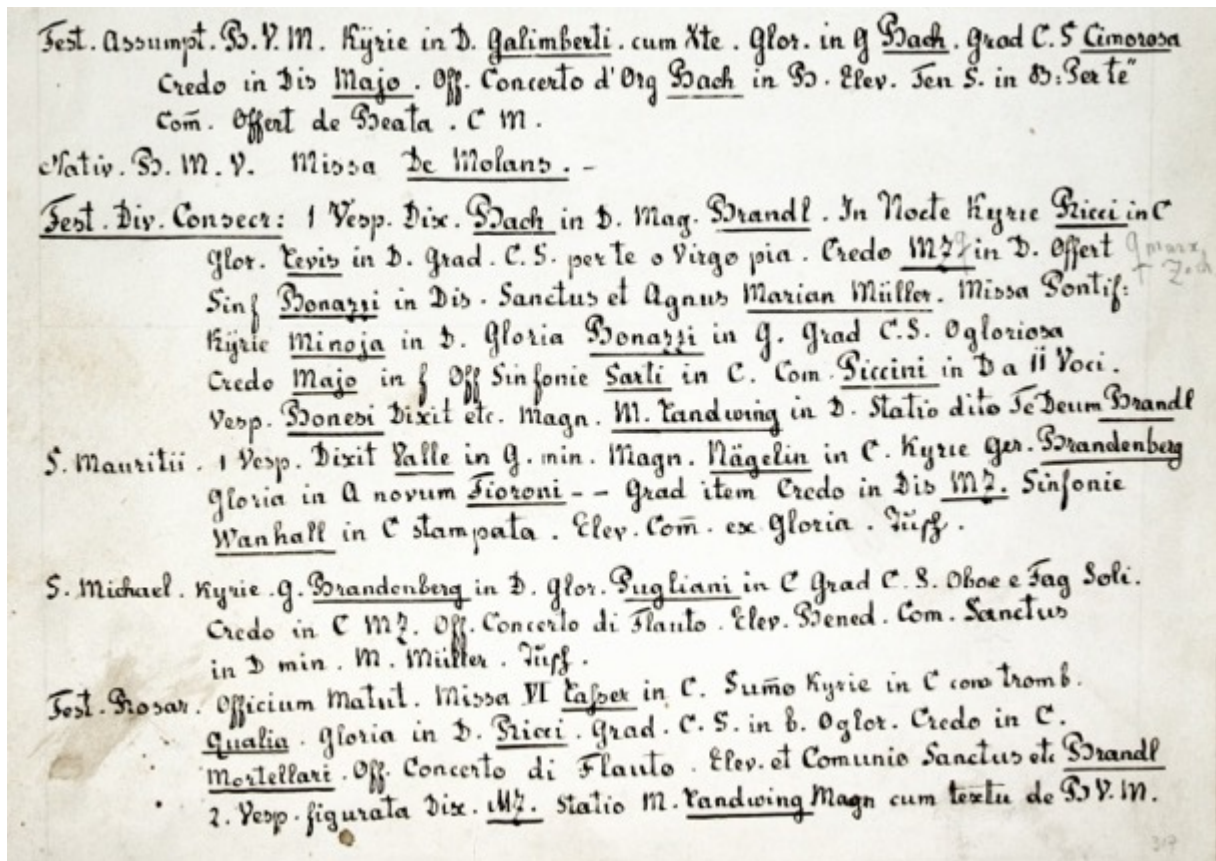 Fest. Assumpt. B. V. M. Kÿrie in D. Galimberti. cum Xte. Glor. in g Bach. Grad C. S Cimorosa
Credo in Dis Majo. Off. Concerto d'Org Bach in B. Elev. Ten S. in B: Per te"
Com̄. Offert de Beata. C M.
Nativ. B. M. V. Missa De Molans. -
Fest. Div. Consecr: 1 Vesp. Dix. Bach in D. Mag. Brandl. In Nocte Kyrie Ricci in C
Glor. Levis in D. Grad. C. S. per te o Virgo pia. Credo MZ in D. Offert
Sinf Bonazzi in Dis. Sanctus et Agnus Marian Müller. Missa Pontif:
Kÿrie Minoja in D. Gloria Bonazzi in G. Grad C. S. O gloriosa
Credo Majo in f Off Sinfonie Sarti in C. Com. Piccini in D a 11 Voci.
Vesp. Bonesi Dixit etc. Magn. M. Landwing in D. Statio dito Te Deum Brandl
S. Mauritii. 1 Vesp. Dixit Valle in G. min. Magn. Nägelin in C. Kyrie Ger. Brandenberg
Gloria in A novum Fioroni -- Grad item Credo in Dis MZ. Sinfonie
Wanhall in C stampata. Elev. Com̄. ex Gloria.
S. Michael. Kyrie. G. Brandenberg in D. Glor. Pugliani in C Grad C. S. Oboe e Fag Soli.
Credo in C MZ. Off. Concerto di Flauto. Elev. Bened. Com. Sanctus
in D min. M. Müller.
Fest. Rosar. Officium Matut. Missa VI Lasser in C. Sum̄o Kyrie in C con tromb.
Qualia. Gloria in D. Ricci. Grad. C. S. in b. O glor. Credo in C.
Mortellari. Off. Concerto di Flauto. Elev. et Comunio Sanctus etc Brandl
2. Vesp. figurata Dix. MZ. Statio M. Landwing Magn cum textu de B V. M.
317